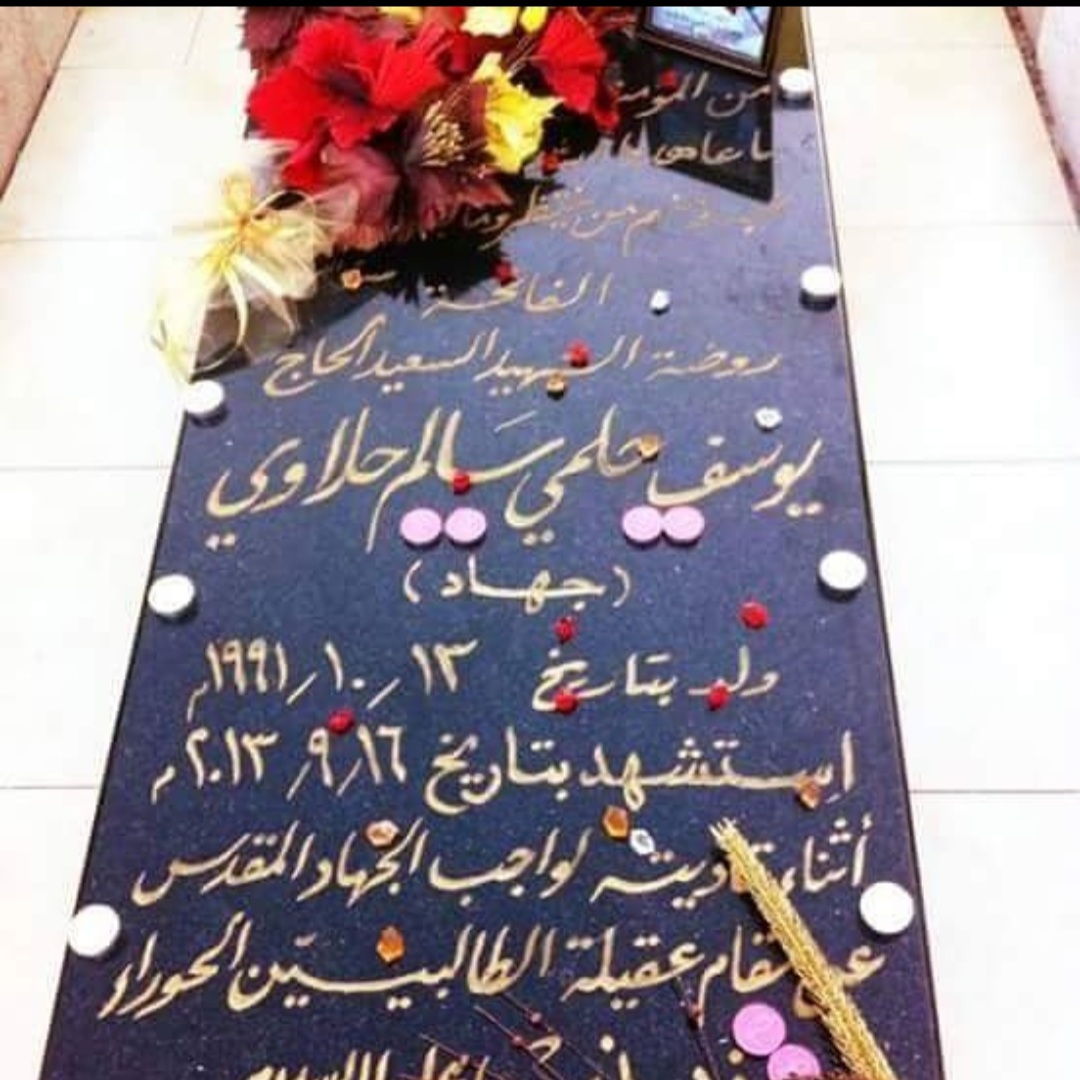 من المؤمنين
ما عاهدوا الله
نحبه ومنهم من ينتظر وما
الفاتحة
روضة الشهيد السعيد الحاج
يوسف حلمي سالم حلاوي
(جهاد)
ولد بتاريخ ١٣ / ١٠ / ١٩٩١م
اِستشهد بتاريخ ١٦ / ٩ / ٢٠١٣م
أثناء تأديته لواجب الجهاد المقدس
عن مقام عقيلة الطالبيّين الحوراء